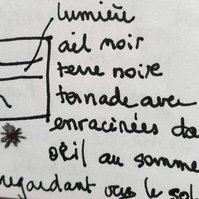 lumière
œil noir
terre noire
tornade avec
enracinées da
œil au somme
regardant vers le sol